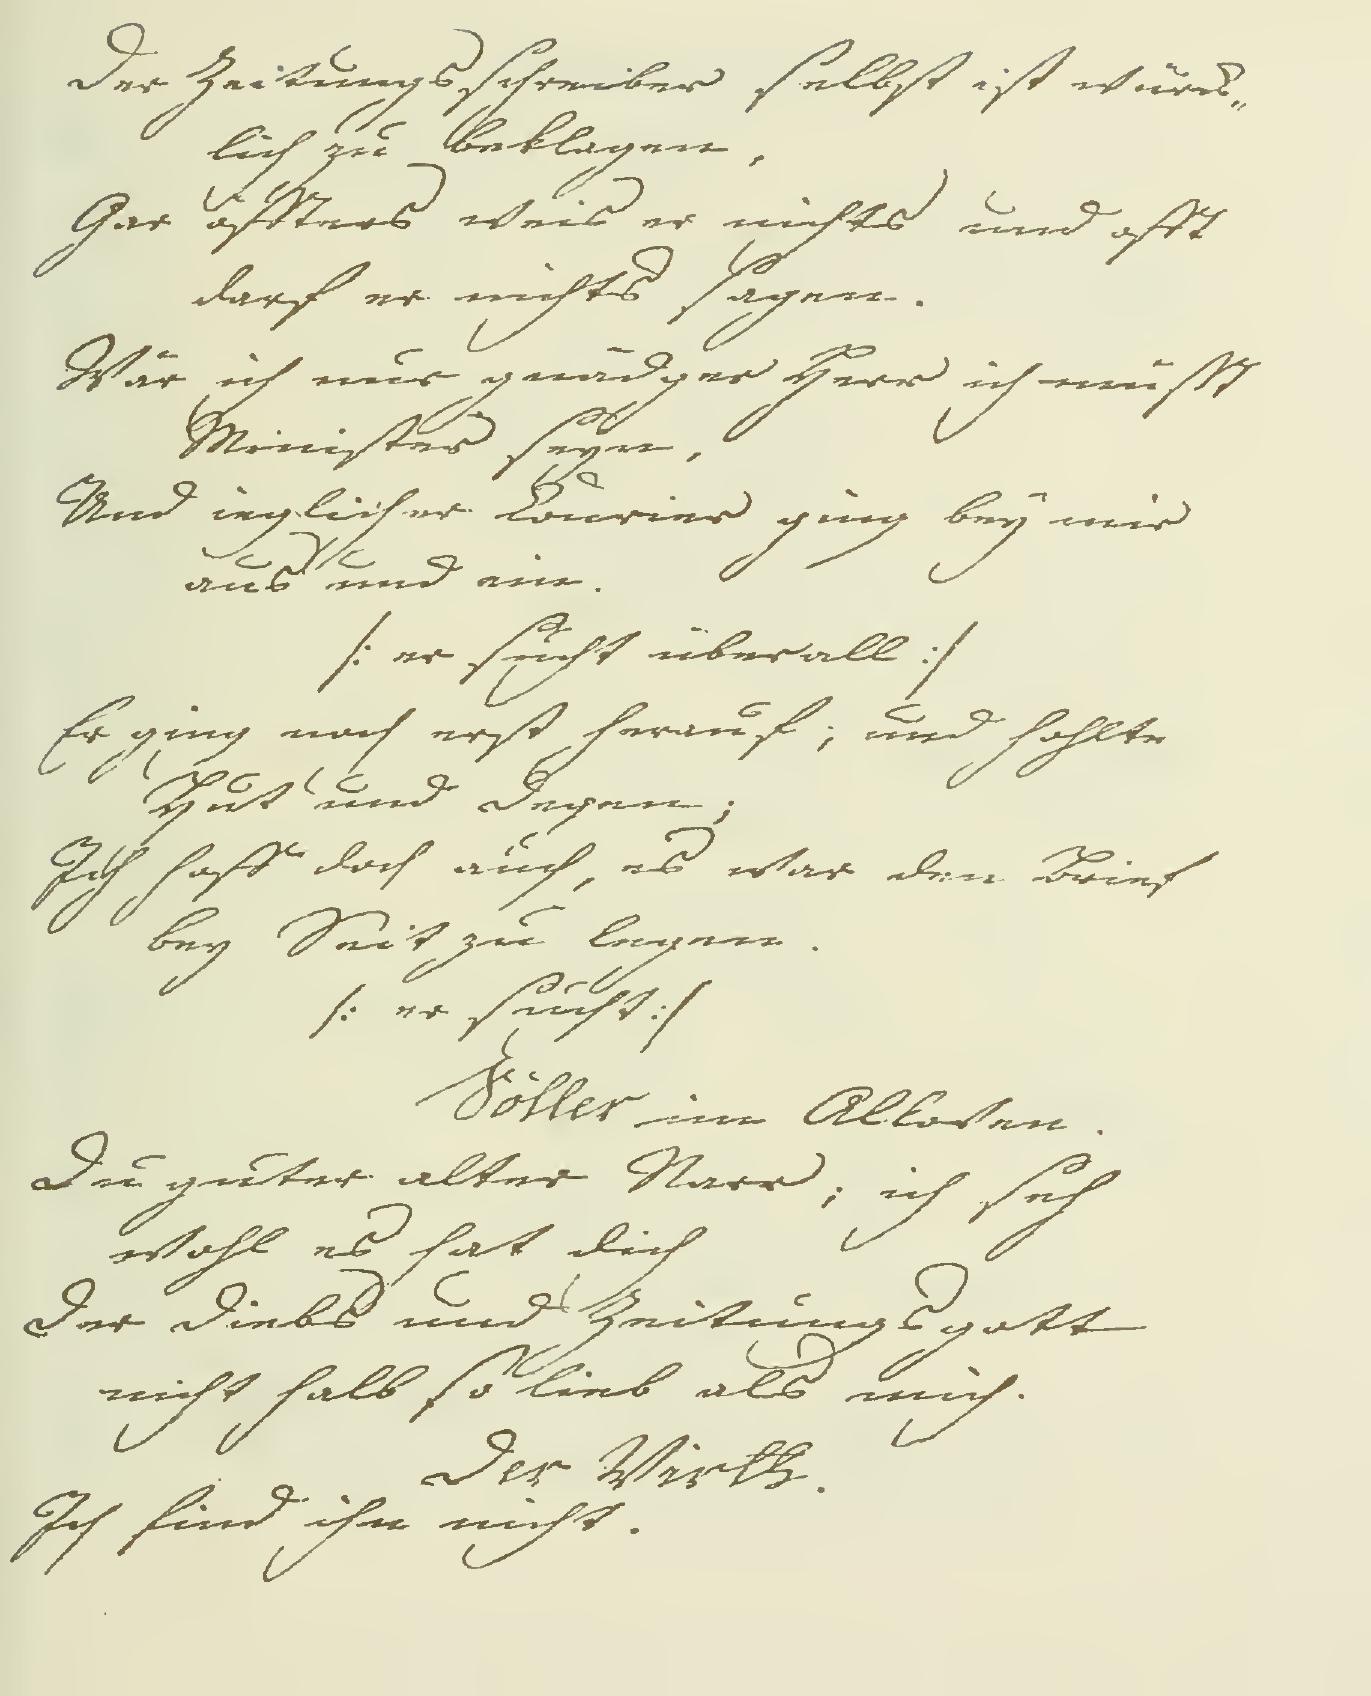 Der Zeitungsschreiber selbst ist würk„
lich zu beklagen,
Gar öffters weis er nichts und offt
darf er nichts sagen.
Wär ich nur gnädger Herr ich müsst
Minister seyn,
Und ieglicher Courier ging bey mir
aus und ein.
/: er sucht überall :/
Er ging noch erst herauf; und hohlte
Hut und Degen;
Ich hoff doch auch, es war den Brief
bey Seit zu legen.
/: er sucht :/
Söller im Alkoven.
Du guter alter Narr; ich seh
wohl es hat dich
Der Diebs und Zeitungsgott
nicht halb so lieb als mich.
Der Wirth.
Ich find ihn nicht.